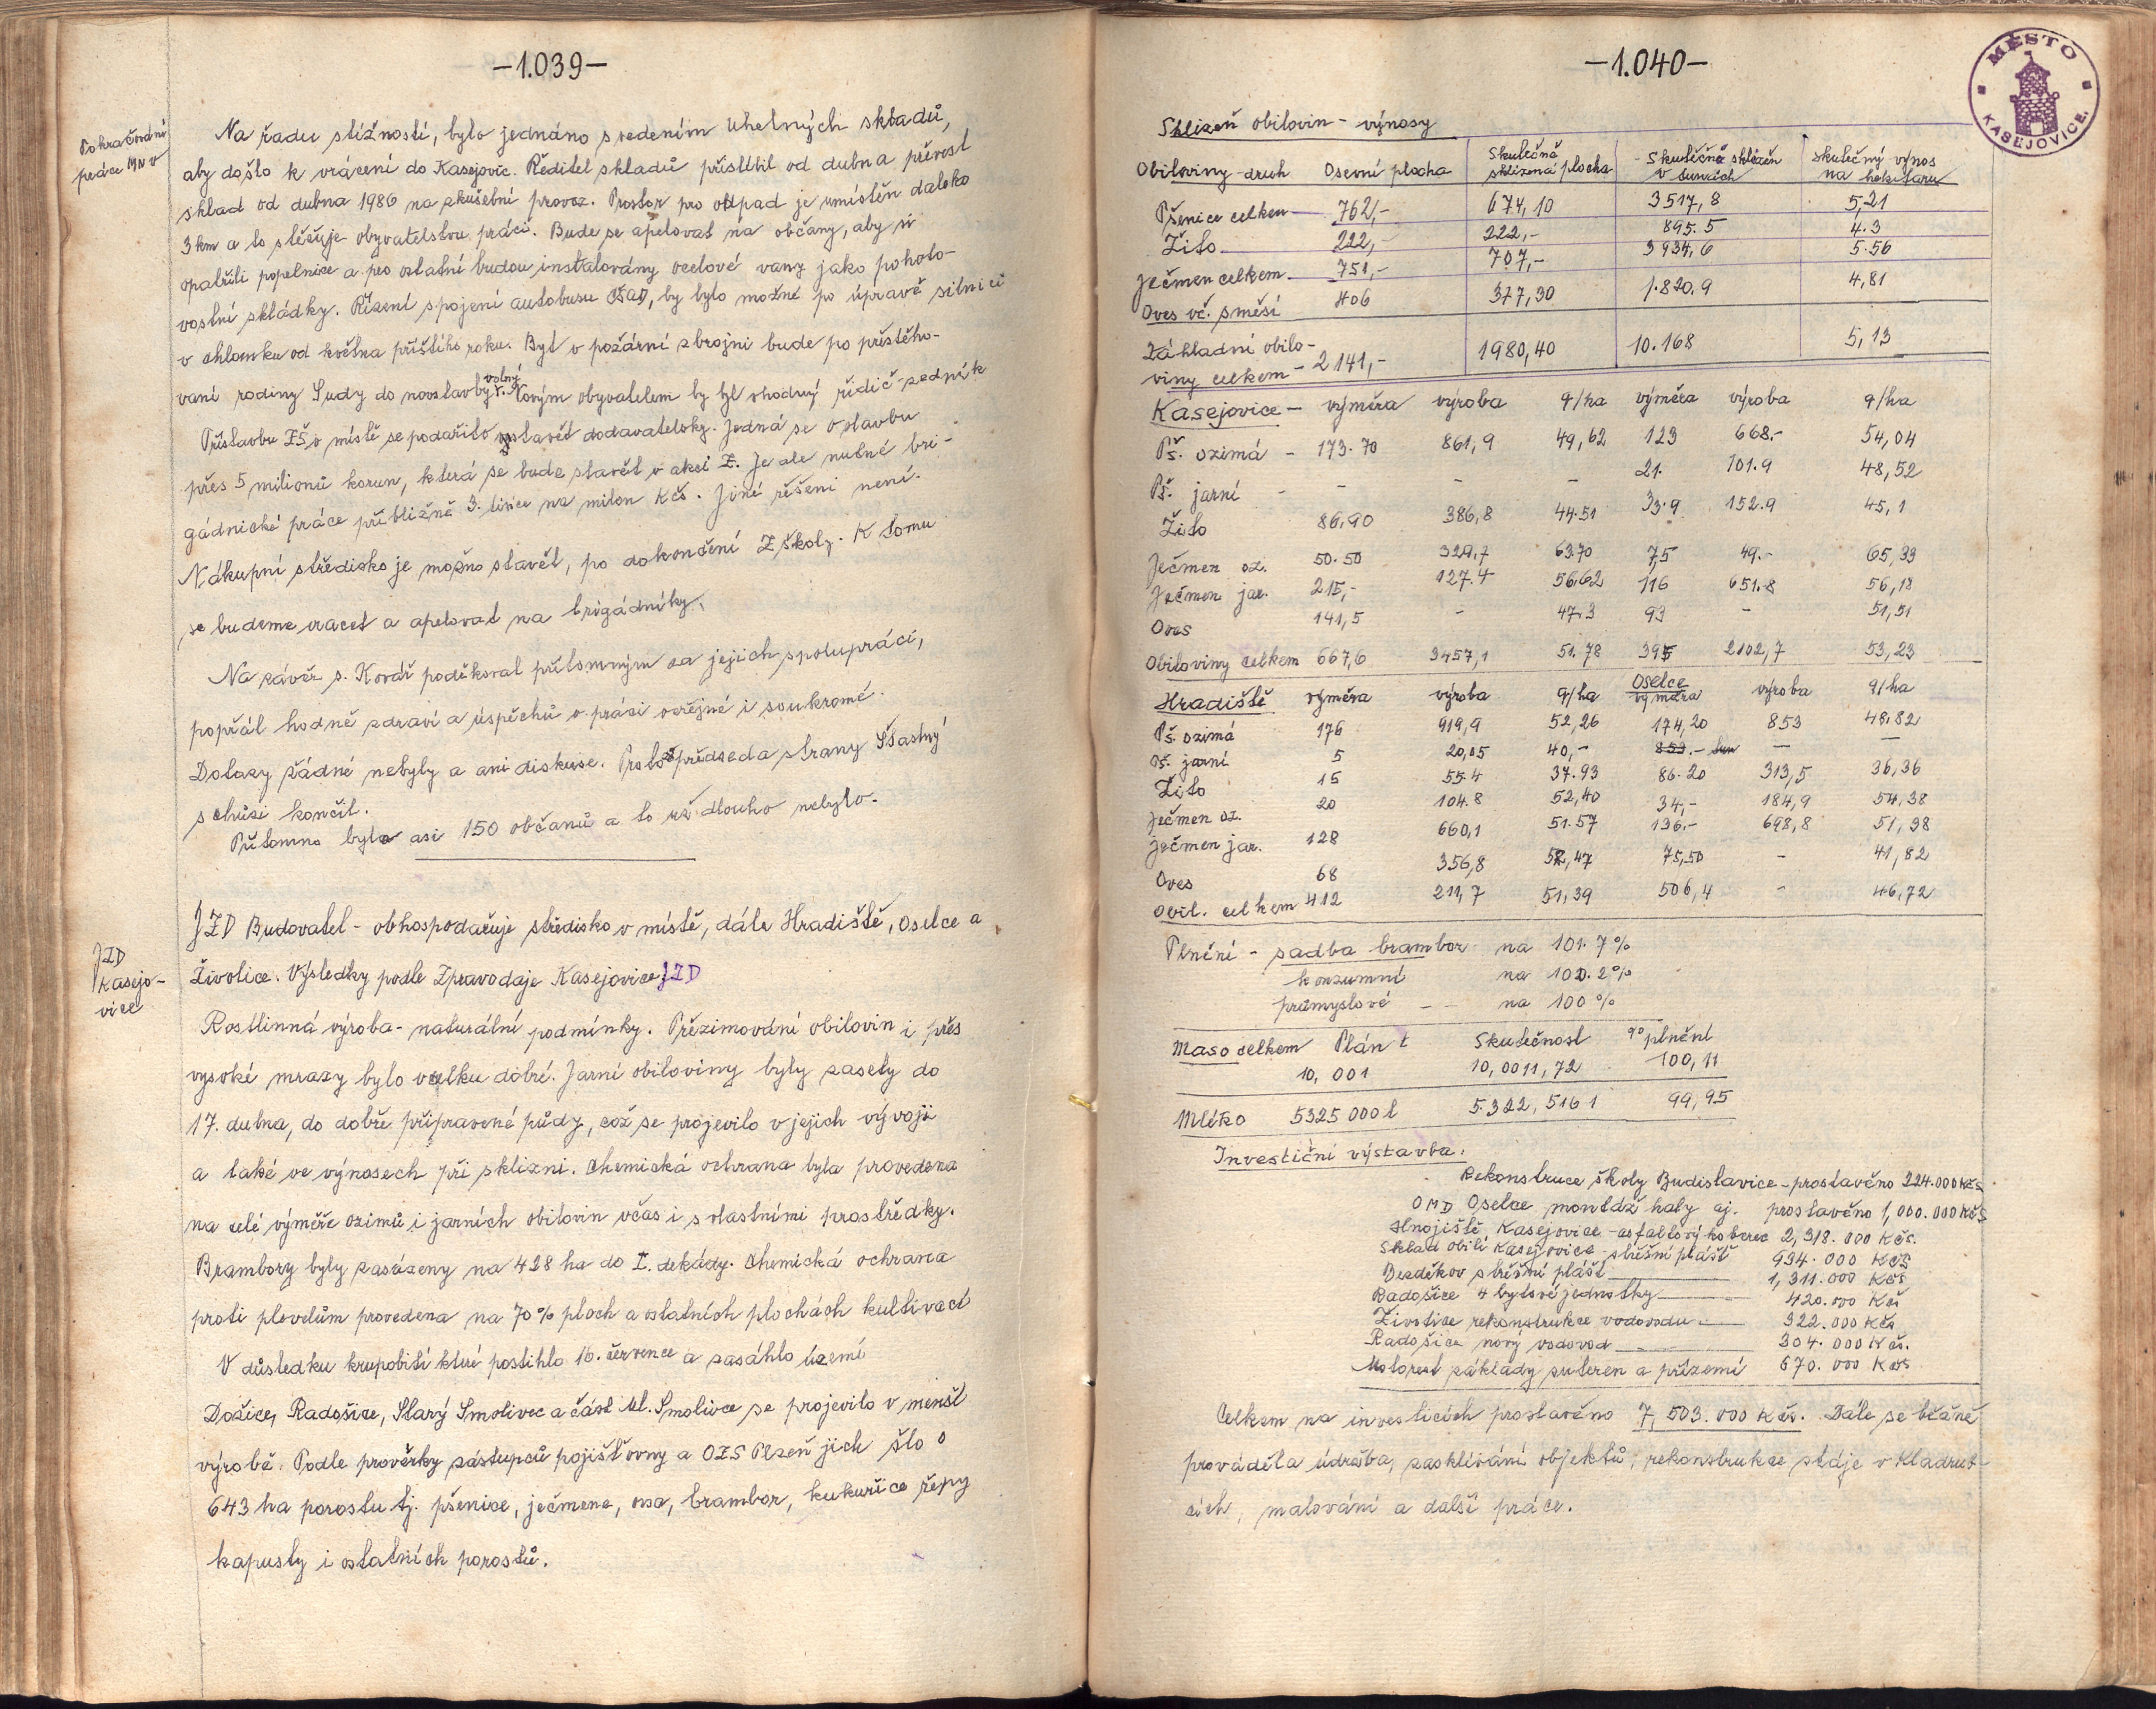 -1.039-
Pokračování
práce MNV
Na řadu stížností, bylo jednáno s vedením Uhelných skladů,
aby došlo k vrácení do Kasejovic. Ředitel skladů přislíbil od dubna převést
sklad od dubna 1986 na zkušební provoz. Prostor pro odpad je umístěn daleko
3 km a to stěžuje obyvatelstvu práci. Bude se apelovat na občany, aby si
opatřili popelnice a pro ostatní budou instalovány ocelové vany jako pohoto-
vostní skládky. Řízení spojení autobusu ČSAD, by bylo možné po úpravě silnici
v chlomku od května příštího roku. Byt v požární zbrojni bude po přestěho-
vaní rodiny Sudy do novostavby volný. Novým obyvatelem by byl vhodný řidič-zedník
Přístavbu ZŠ v místě se podařilo vystavět dodavatelsky. Jedná se o stavbu
přes 5 milionů korun, která se bude stavět v akci Z. Je ale nutné bri-
gádnické práce přibližně 3. tisíce na milon Kčs. Jiné řešeni není.
Nákupní středisko je možno stavět, po dokončení Z školy. K tomu
se budeme vracet a apelovat na brigádníky.
Na závěr s. Kovář poděkoval přítomným za jejich spolupráci,
popřál hodně zdraví a úspěchů v práci veřejné i soukromé.
Dotazy žádné nebyly a ani diskuse. Proto předseda strany Šťastný
schůzi končil.
Přítomno bylo asi 150 občanů a to už dlouho nebylo.
JZD
Kasejo-
vice
JZD Budovatel - obhospodařuje středisko v místě, dále Hradiště, Oselce a
Životice. Výsledky podle Zpravodaje Kasejovice JZD
Rostlinná výroba - naturální podmínky. Přezimování obilovin i přes
vysoké mrazy bylo vcelku dobré. Jarní obiloviny byly zasety do
17. dubna, do dobře připravené půdy, což se projevilo v jejich vývoji
a také ve výnosech při sklizni. Chemická ochrana byla provedena
na celé výměře ozimů i jarních obilovin včas i s vlastními prostředky.
Brambory byly zasázeny na 428 ha do I. dekády. Chemická ochrana
proti plevelům provedena na 70% ploch a ostatních plochách kultivací
V důsledku krupobití které postihlo 16. července a zasáhlo území
Dožice, Radošice, Starý Smolivec a část Ml. Smolivce se projevilo v menší
výrobě. Podle prověrky zástupců pojišťovny a OZS Plzeň jich šlo o
643 ha porostu tj. pšenice, ječmene, ovsa, brambor, kukuřice řepy
kapusty i ostatních porostů.
-1.040-
MĚSTO KASEJOVICE.
Sklizeň obilovin - výnosy
Obiloviny-druh Osevní plocha Skutečně sklizená plocha Skutečná sklizeň v tunách Skutečný výnos na hektaru
Pšenice celkem 762,- 674,10 3517,8 5,21
Žito 222,- 222,- 895.5 4.3
Ječmen celkem 751,- 707,- 3934,6 5.56
Oves vč. směsí 406 377,30 1.820.9 4,81
Základní obilo-
viny celkem - 2141,- 1980,40 10.168 5,13
Kasejovice - výměra výroba q/ha výměra výroba q/ha
Pš. ozimá - 173.70 861,9 49,62 123 668.- 54,04
Pš. jarní - - - - 21. 101.9 48,52
Žito 86,90 386,8 44.51 33.9 152.9 45,1
Ječmen oz. 50.50 329,7 63.70 7,5 49.- 65,33
Ječmen jar. 215,- 127.4 56.62 116 651.8 56,18
Oves 141,5 - 47.3 93 - 51,51
Obiloviny celkem 667,6 3457,1 51.78 395 2102,7 53,23
Hradiště výměra výroba q/ha Oselce výměra výroba q/ha
Pš. ozimá 176 919,9 52,26 174,20 853 48.82
Pš. jarní 5 20,05 40,- 853.- — —
Žito 15 55.4 37.93 86.20 313,5 36,36
Ječmen oz. 20 104.8 52,40 34,- 184,9 54,38
Ječmen jar. 128 660,1 51.57 136.- 698,8 51,38
Oves 68 356,8 52,47 75,50 - 41,82
Obil. celkem 412 211,7 51,39 506,4 - 46,72
Plnění - sadba brambor na 101.7%
konzumní na 100.2%
průmyslové - - na 100%
Maso celkem Plán t Skutečnost % plnění
10,001 10,0011,72 100,11
Mléko 5325000 l 5.322,516 l 99,95
Investiční výstavba:
Rekonstruce školy Budislavice - prostavěno 224.000 Kčs
OMD Oselce montáž haly aj. prostavěno 1,000.000 Kčs
Hnojiště Kasejovice - asfaltový koberec 2,318.000 Kčs.
Sklad obilí Kasejovice - střešní plášť 934.000 Kčs
Bezděkov střešní plášť 1,311.000 Kčs
Radošice 4 bytové jednotky 420.000 Kčs
Životice rekonstrukce vodovodu 322.000 Kčs
Radošice nový vodovod 304.000 Kčs.
Motorest základy suteren a přízemí 670.000 Kčs
Celkem na investicích prostavěno 7,503.000 Kčs. Dále se běžně
prováděla údržba, zasklívání objektů, rekonstrukce stáje v Kladrub-
cích, malování a další práce.